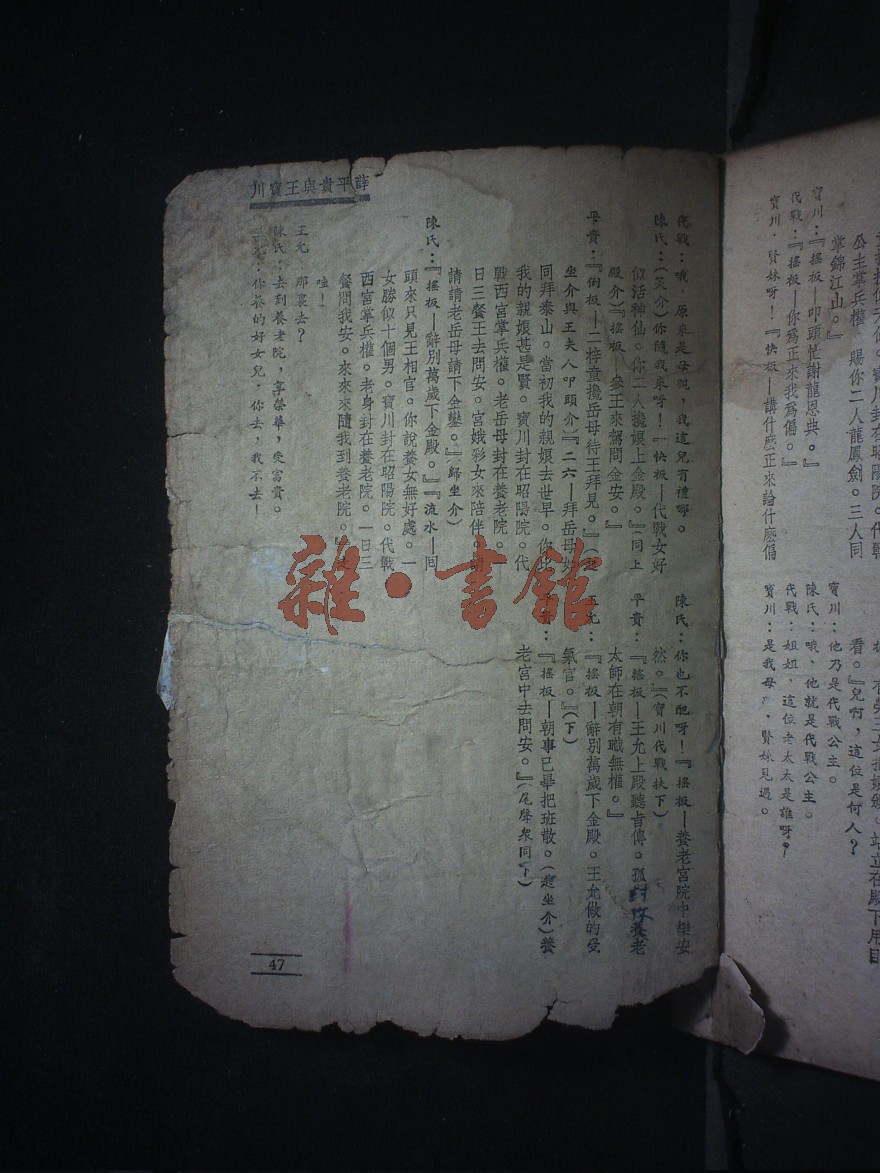 公主掌兵權。賜你二人龍鳳劍。三人同
掌錦江山。』
寶川：『搖板—叩頭忙謝龍恩典。』
代戰：『搖板—你爲正來我爲偏。』
寶川：賢妹呀！『快板—講什麽正來論什麽偏
看。』兒啊，這位是何人？
寶川：他乃是代戰公主。
陳氏：哦，他就是代戰公主。
代戰：姐姐，這位老太太是誰呀？
寶川：是我母，賢妹見過。
薛平貴與王寶川
代戰：哦，原來是母親，我這兒有禮哪。
陳氏：（笑介）你隨我來呀！『快板—代戰女好
似活神仙。你二人攙娘上金殿。（同上
殿介）『搖板—參王來駕問金安。』
平貴：『倒板—二梓童攙岳母待王拜見。』（起
坐介與王夫人叩頭介）『二六—拜岳母如
同拜泰山。當初我的親娘去世早。你比
我的親娘甚是賢。寶川封在昭陽院。代
戰西宮掌兵權。老岳母封在養老院。
日三餐王去問安。宮娥彩女來陪伴。請
請請老岳母請下金鑾。』（歸坐介）
陳氏：『搖板—辭別萬歲下金殿。』『流水—回
頭來只見王相官。你說養女無好處。一
女勝似十個男。寶川封在昭陽院。代戰
西宮掌兵權。老身封在養老院。一日三
餐問我安。來來來隨我到養老院。』
哇！
王允：那裏去？
陳氏：去到養老院，享榮華，受富貴。
王允：你養的好女兒，你去，我不去！
陳氏：你也不配呀！『搖板—養老宮院中樂安
然。』（寶川代戰扶下）
平貴：『搖板—王允上殿聽旨傳。孤封你養老
太師在朝有職無權。』
王允：『搖板—辭別萬歲下金殿。王允做的受
氣官。』（下）
：『搖板—朝事已畢把班散。（起坐介）養
老宮中去問安。』（尾聲衆同下）
47
雜·書館